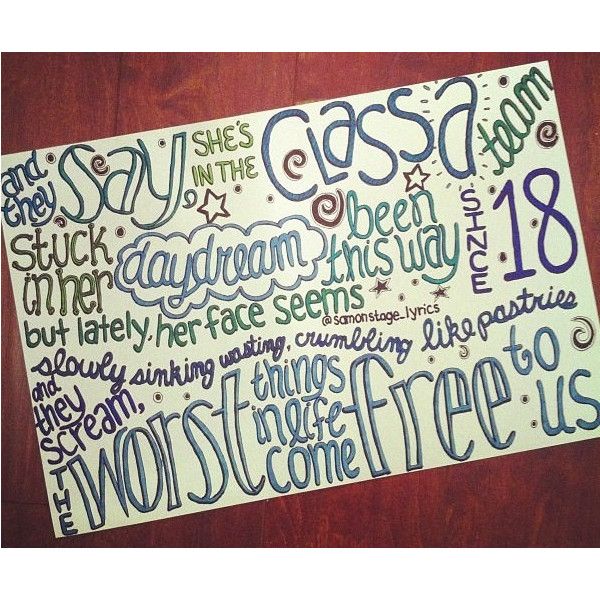 and they Say, SHE'S IN THE Class A team
stuck in her daydream been this way SINCE 18
but lately, her face seems
@samonstage_lyrics
slowly sinking wasting, crumbling like pastries
and they scream,
THE worst things in life come free to us